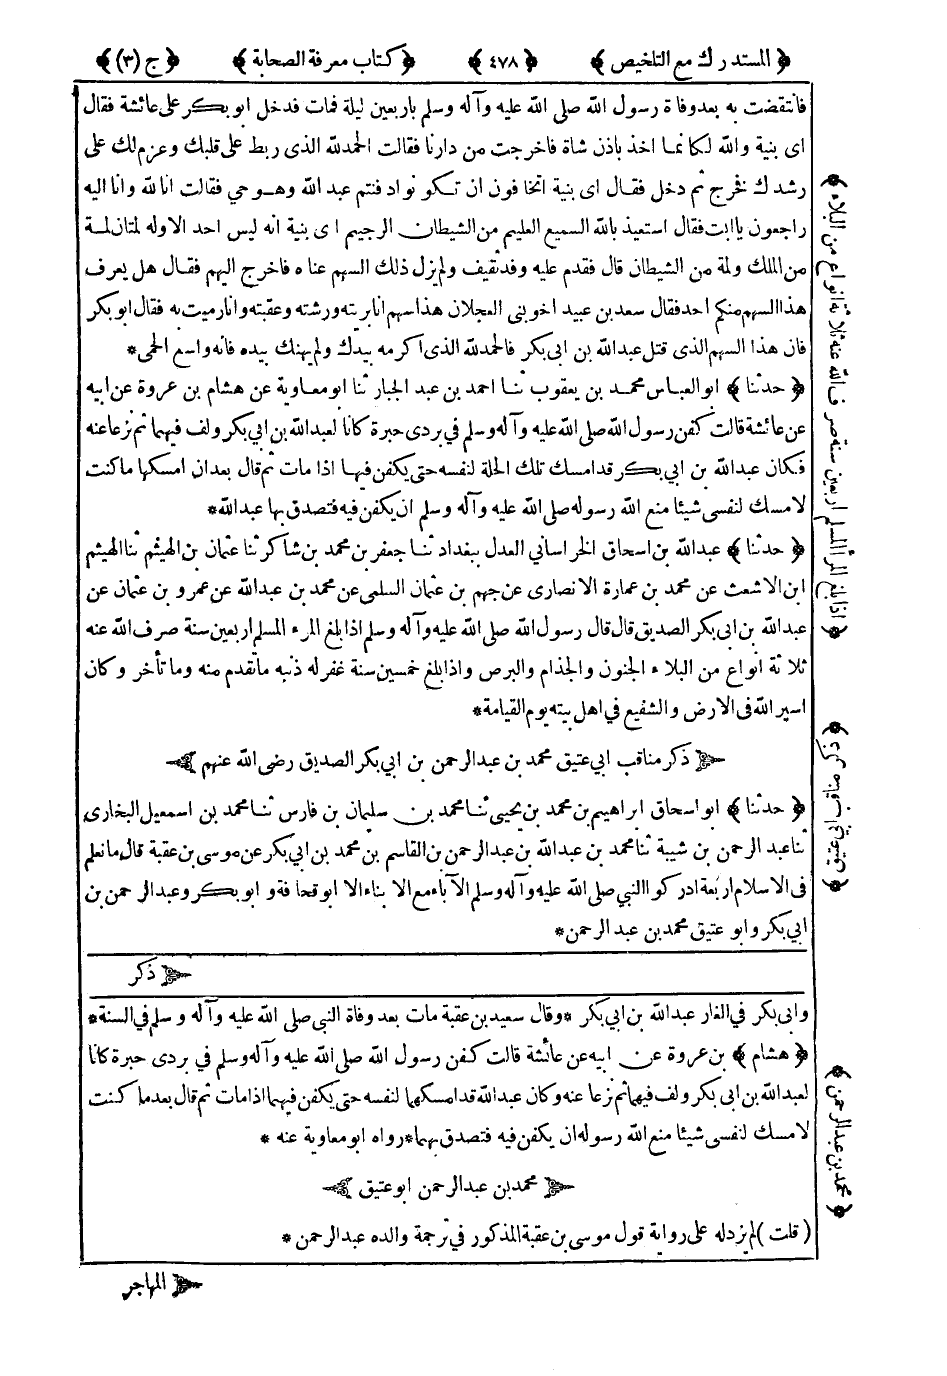 ﴿ المستدرك مع التلخيص ﴾ ﴿ ٤٧٨ ﴾ ﴿ كتاب معرفة الصحابة ﴾ ﴿ ج (٣) ﴾
فانتقضت به بعد وفاة رسول الله صلى الله عليه وآله وسلم باربعين ليلة فمات فدخل ابو بكر على عائشة فقال
اى بنية والله لكانما اخذ باذن شاة فاخرجت من دارنا فقالت الحمد لله الذى ربط على قلبك وعزم لك على
رشدك فخرج ثم دخل فقال اى بنية اتخافون ان تكونوا دفنتم عبد الله وهو حي فقالت انا لله وانا اليه
راجعون يا ابت فقال استعيذ بالله السميع العليم من الشيطان الرجيم اى بنية انه ليس احد الا وله لمتان لمة
من الملك ولمة من الشيطان قال فقدم عليه وفد ثقيف ولم يزل ذلك السهم عناه فاخرج اليهم فقال هل يعرف
هذا السهم منكم احد فقال سعد بن عبيد اخو بنى العجلان هذا سهم انا بريته ورشته وعقبته وانا رميت به فقال ابو بكر
فان هذا السهم الذى قتل عبد الله بن ابى بكر فالحمد لله الذى اكرمه بيدك ولم يهنك بيده فانه واسع الحمى*
﴿ حدثنا ﴾ ابو العباس محمد بن يعقوب ثنا احمد بن عبد الجبار ثنا ابو معاوية عن هشام بن عروة عن ابيه
عن عائشة قالت كفن رسول الله صلى الله عليه وآله وسلم في بردى حبرة كانا لعبد الله بن ابي بكر ولف فيهما ثم نزعا عنه
فكان عبد الله بن ابي بكر قد امسك تلك الحلة لنفسه حتى يكفن فيها اذا مات ثم قال بعد ان امسكها ما كنت
لامسك لنفسى شيئا منع الله رسوله صلى الله عليه وآله وسلم ان يكفن فيه فتصدق بها عبد الله*
﴿ حدثنا ﴾ عبد الله بن اسحاق الخراساني العدل ببغداد ثنا جعفر بن محمد بن شاكر ثنا عثمان بن الهيثم ثنا الهيثم
ابن الاشعث عن محمد بن عمارة الانصارى عن جهم بن عثمان السلمى عن محمد بن عبد الله عن عمرو بن عثمان عن
عبد الله بن ابى بكر الصديق قال قال رسول الله صلى الله عليه وآله وسلم اذا بلغ المرء المسلم اربعين سنة صرف الله عنه
ثلاثة انواع من البلاء الجنون والجذام والبرص واذا بلغ خمسين سنة غفر له ذنبه ما تقدم منه وما تأخر وكان
اسير الله فى الارض والشفيع في اهل بيته يوم القيامة*
ذكر مناقب ابي عتيق محمد بن عبد الرحمن بن ابي بكر الصديق رضى الله عنهم
﴿ حدثنا ﴾ ابو اسحاق ابراهيم بن محمد بن يحيى ثنا محمد بن سليمان بن فارس ثنا محمد بن اسمعيل البخارى
ثنا عبد الرحمن بن شيبة ثنا محمد بن عبد الله بن عبد الرحمن بن القاسم بن محمد بن ابي بكر عن موسى بن عقبة قال ما نعلم
فى الاسلام اربعة ادركوا النبي صلى الله عليه وآله وسلم الآباء مع الابناء الا ابو قحافة وابو بكر وعبد الرحمن بن
ابي بكر وابو عتيق محمد بن عبد الرحمن*
ذكر
وابى بكر في الغار عبد الله بن ابي بكر *وقال سعيد بن عقبة مات بعد وفاة النبى صلى الله عليه وآله وسلم في السنة*
﴿ هشام ﴾ بن عروة عن ابيه عن عائشة قالت كفن رسول الله صلى الله عليه وآله وسلم في بردى حبرة كانا
لعبد الله بن ابى بكر ولف فيهما ثم نزعا عنه وكان عبد الله قد امسكهما لنفسه حتى يكفن فيهما اذا مات ثم قال بعد ما كنت
لامسك لنفسى شيئا منع الله رسوله ان يكفن فيه فتصدق بهما*رواه ابو معاوية عنه *
محمد بن عبد الرحمن ابو عتيق
( قلت ) لم يزد له على رواية قول موسى بن عقبة المذكور في ترجمة والده عبد الرحمن *
المهاجر
﴿ اذا بلغ المرأ المسلم اربعين سنة صرف الله عنه ثلاثة انواع من البلاء ﴾
﴿ محمد بن عبد الرحمن ﴾